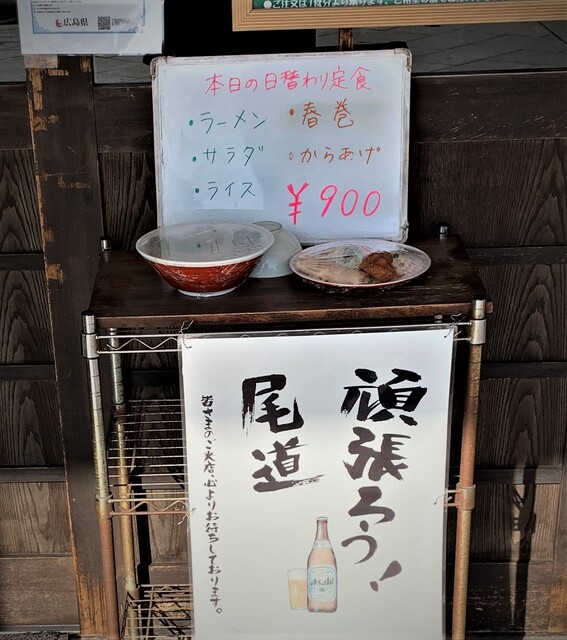 広島県
●ご注文は1食分より承ります。
本日の日替わり定食
・ラーメン
・サラダ
・ライス
・春巻
・からあげ
¥900
頑張ろう!
尾道
皆さまのご来店、心よりお待ちしております。
Asahi